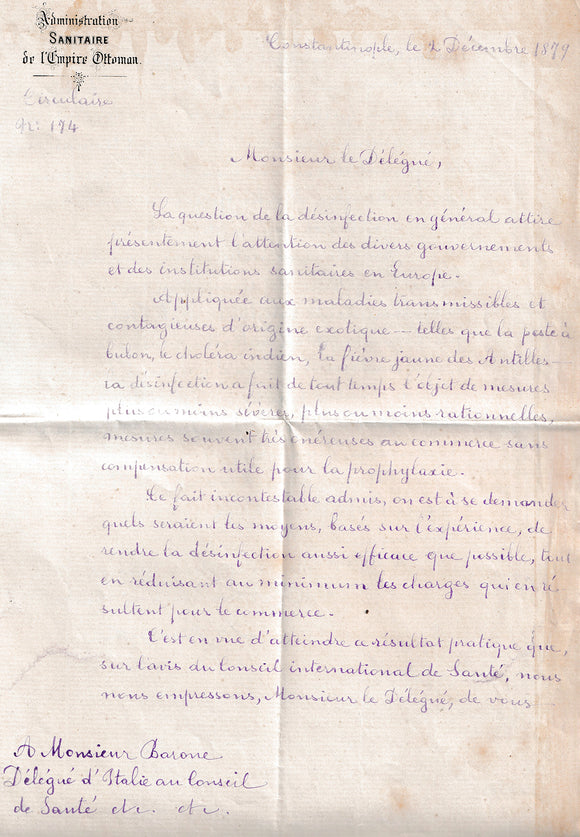 Administration
SANITAIRE
de l'Empire Ottoman.
Constantinople, le 2 Décembre 1879
Circulaire
Nr: 174
Monsieur le Délégué,
La question de la désinfection en général attire
présentement l'attention des divers gouvernements
et des institutions sanitaires en Europe.
Appliquée aux maladies transmissibles et
contagieuses d'origine exotique — telles que la peste à
bubon, le choléra indien, la fièvre jaune des Antilles —
la désinfection a fait de tout temps l'objet de mesures
plus ou moins sévères, plus ou moins rationnelles,
mesures souvent très onéreuses au commerce sans
compensation utile pour la prophylaxie.
Ce fait incontestable admis, on est à se demander
quels seraient les moyens, basés sur l'expérience, de
rendre la désinfection aussi efficace que possible, tout
en réduisant au minimum les charges qui en ré
sultent pour le commerce.
C'est en vue d'atteindre ce résultat pratique que,
sur l'avis du Conseil international de Santé, nous
nous empressons, Monsieur le Délégué, de vous
A Monsieur Barone
Délégué d'Italie au Conseil
de Santé etc. etc.